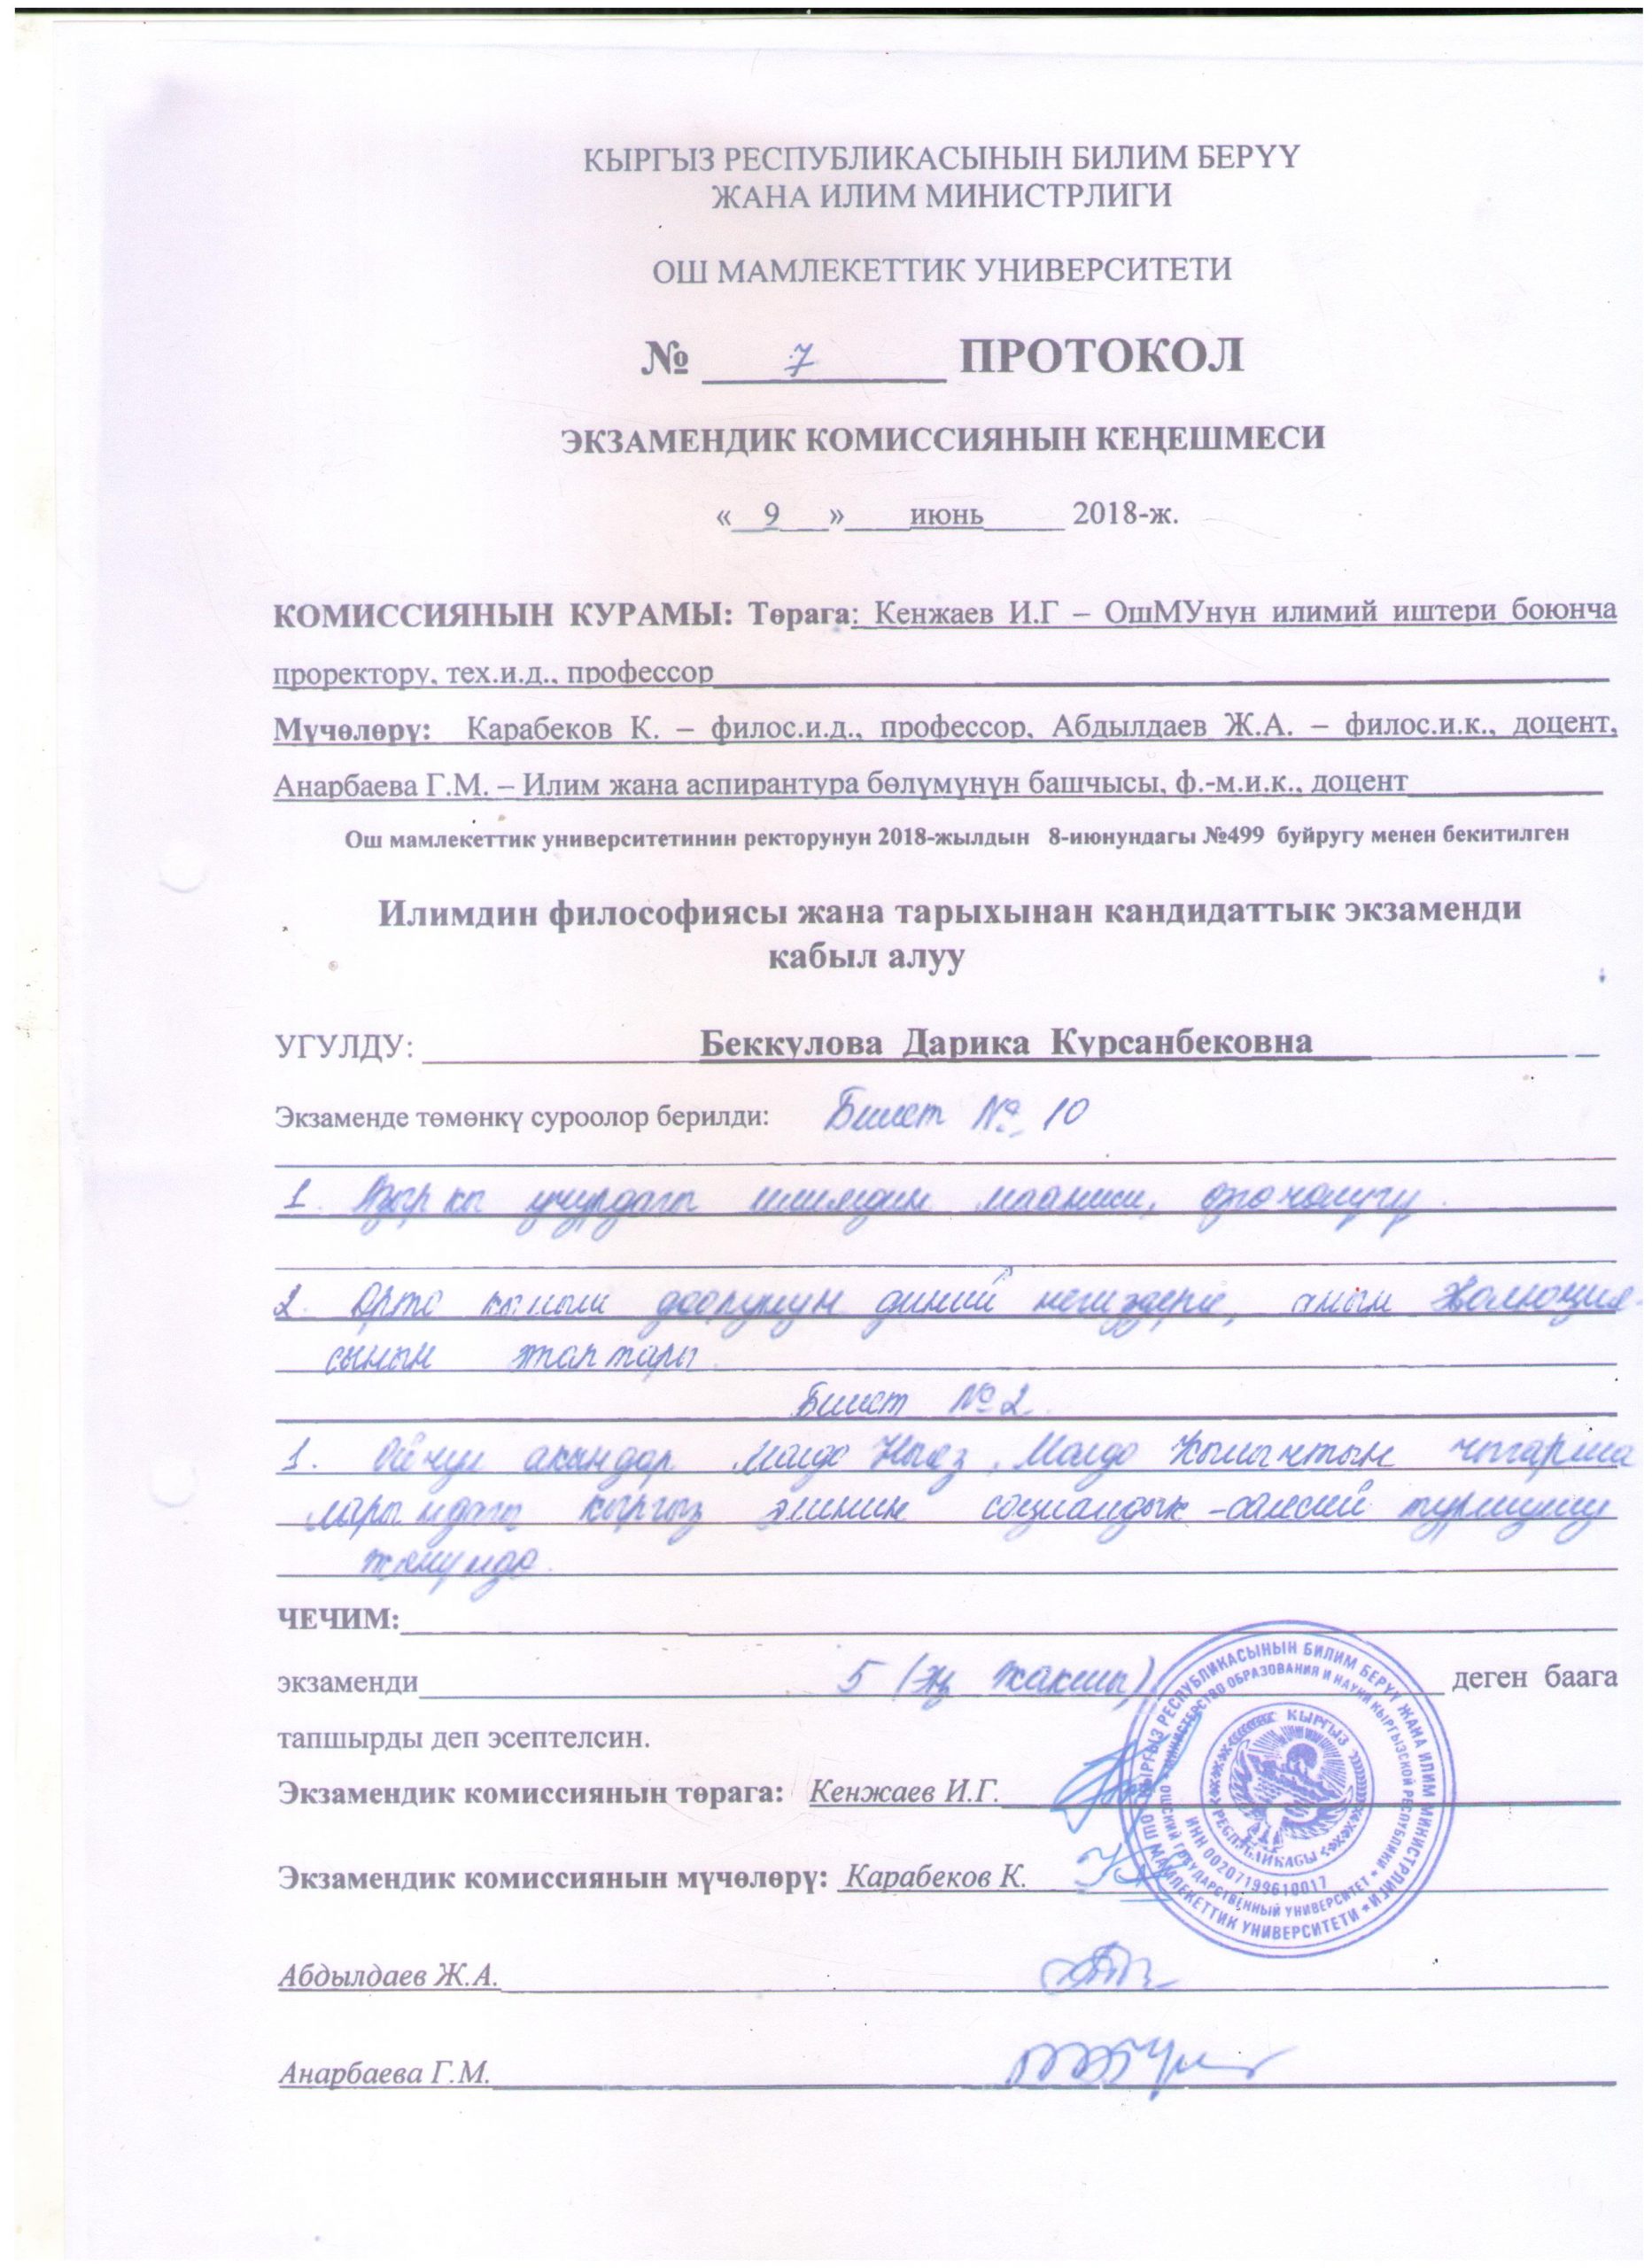 КЫРГЫЗ РЕСПУБЛИКАСЫНЫН БИЛИМ БЕРҮҮ
ЖАНА ИЛИМ МИНИСТРЛИГИ
ОШ МАМЛЕКЕТТИК УНИВЕРСИТЕТИ
№ 7 ПРОТОКОЛ
ЭКЗАМЕНДИК КОМИССИЯНЫН КЕҢЕШМЕСИ
« 9 » июнь 2018-ж.
КОМИССИЯНЫН КУРАМЫ: Төрага: Кенжаев И.Г – ОшМУнун илимий иштери боюнча
проректору, тех.и.д., профессор
Мүчөлөрү: Карабеков К. – филос.и.д., профессор, Абдылдаев Ж.А. – филос.и.к., доцент,
Анарбаева Г.М. – Илим жана аспирантура бөлүмүнүн башчысы, ф.-м.и.к., доцент
Ош мамлекеттик университетинин ректорунун 2018-жылдын 8-июнундагы №499 буйругу менен бекитилген
Илимдин философиясы жана тарыхынан кандидаттык экзаменди
кабыл алуу
УГУЛДУ: Беккулова Дарика Курсанбековна
Экзаменде төмөнкү суроолор берилди: Билет № 10
1. Азыркы учурдагы илимдин мааниси, өзгөчөлүгү.
2. Орто кылым доорунун диний негиздери, анын эволюция-
сынын этаптары.
Билет № 2.
1. Ойчул акындар Молдо Нияз, Молдо Кылычтын чыгарма
ларындагы кыргыз элинин социалдык-саясий турмушу
жөнүндө.
ЧЕЧИМ:
экзаменди 5 (эң жакшы) деген баага
тапшырды деп эсептелсин.
Экзамендик комиссиянын төрага: Кенжаев И.Г.
Экзамендик комиссиянын мүчөлөрү: Карабеков К.
Абдылдаев Ж.А.
Анарбаева Г.М.
КЫРГЫЗ РЕСПУБЛИКАСЫНЫН БИЛИМ БЕРҮҮ ЖАНА ИЛИМ МИНИСТРЛИГИ * ОШ МАМЛЕКЕТТИК УНИВЕРСИТЕТИ *
МИНИСТЕРСТВО ОБРАЗОВАНИЯ И НАУКИ КЫРГЫЗСКОЙ РЕСПУБЛИКИ * ОШСКИЙ ГОСУДАРСТВЕННЫЙ УНИВЕРСИТЕТ *
ИНН 00207199610017
КЫРГЫЗ РЕСПУБЛИКАСЫ